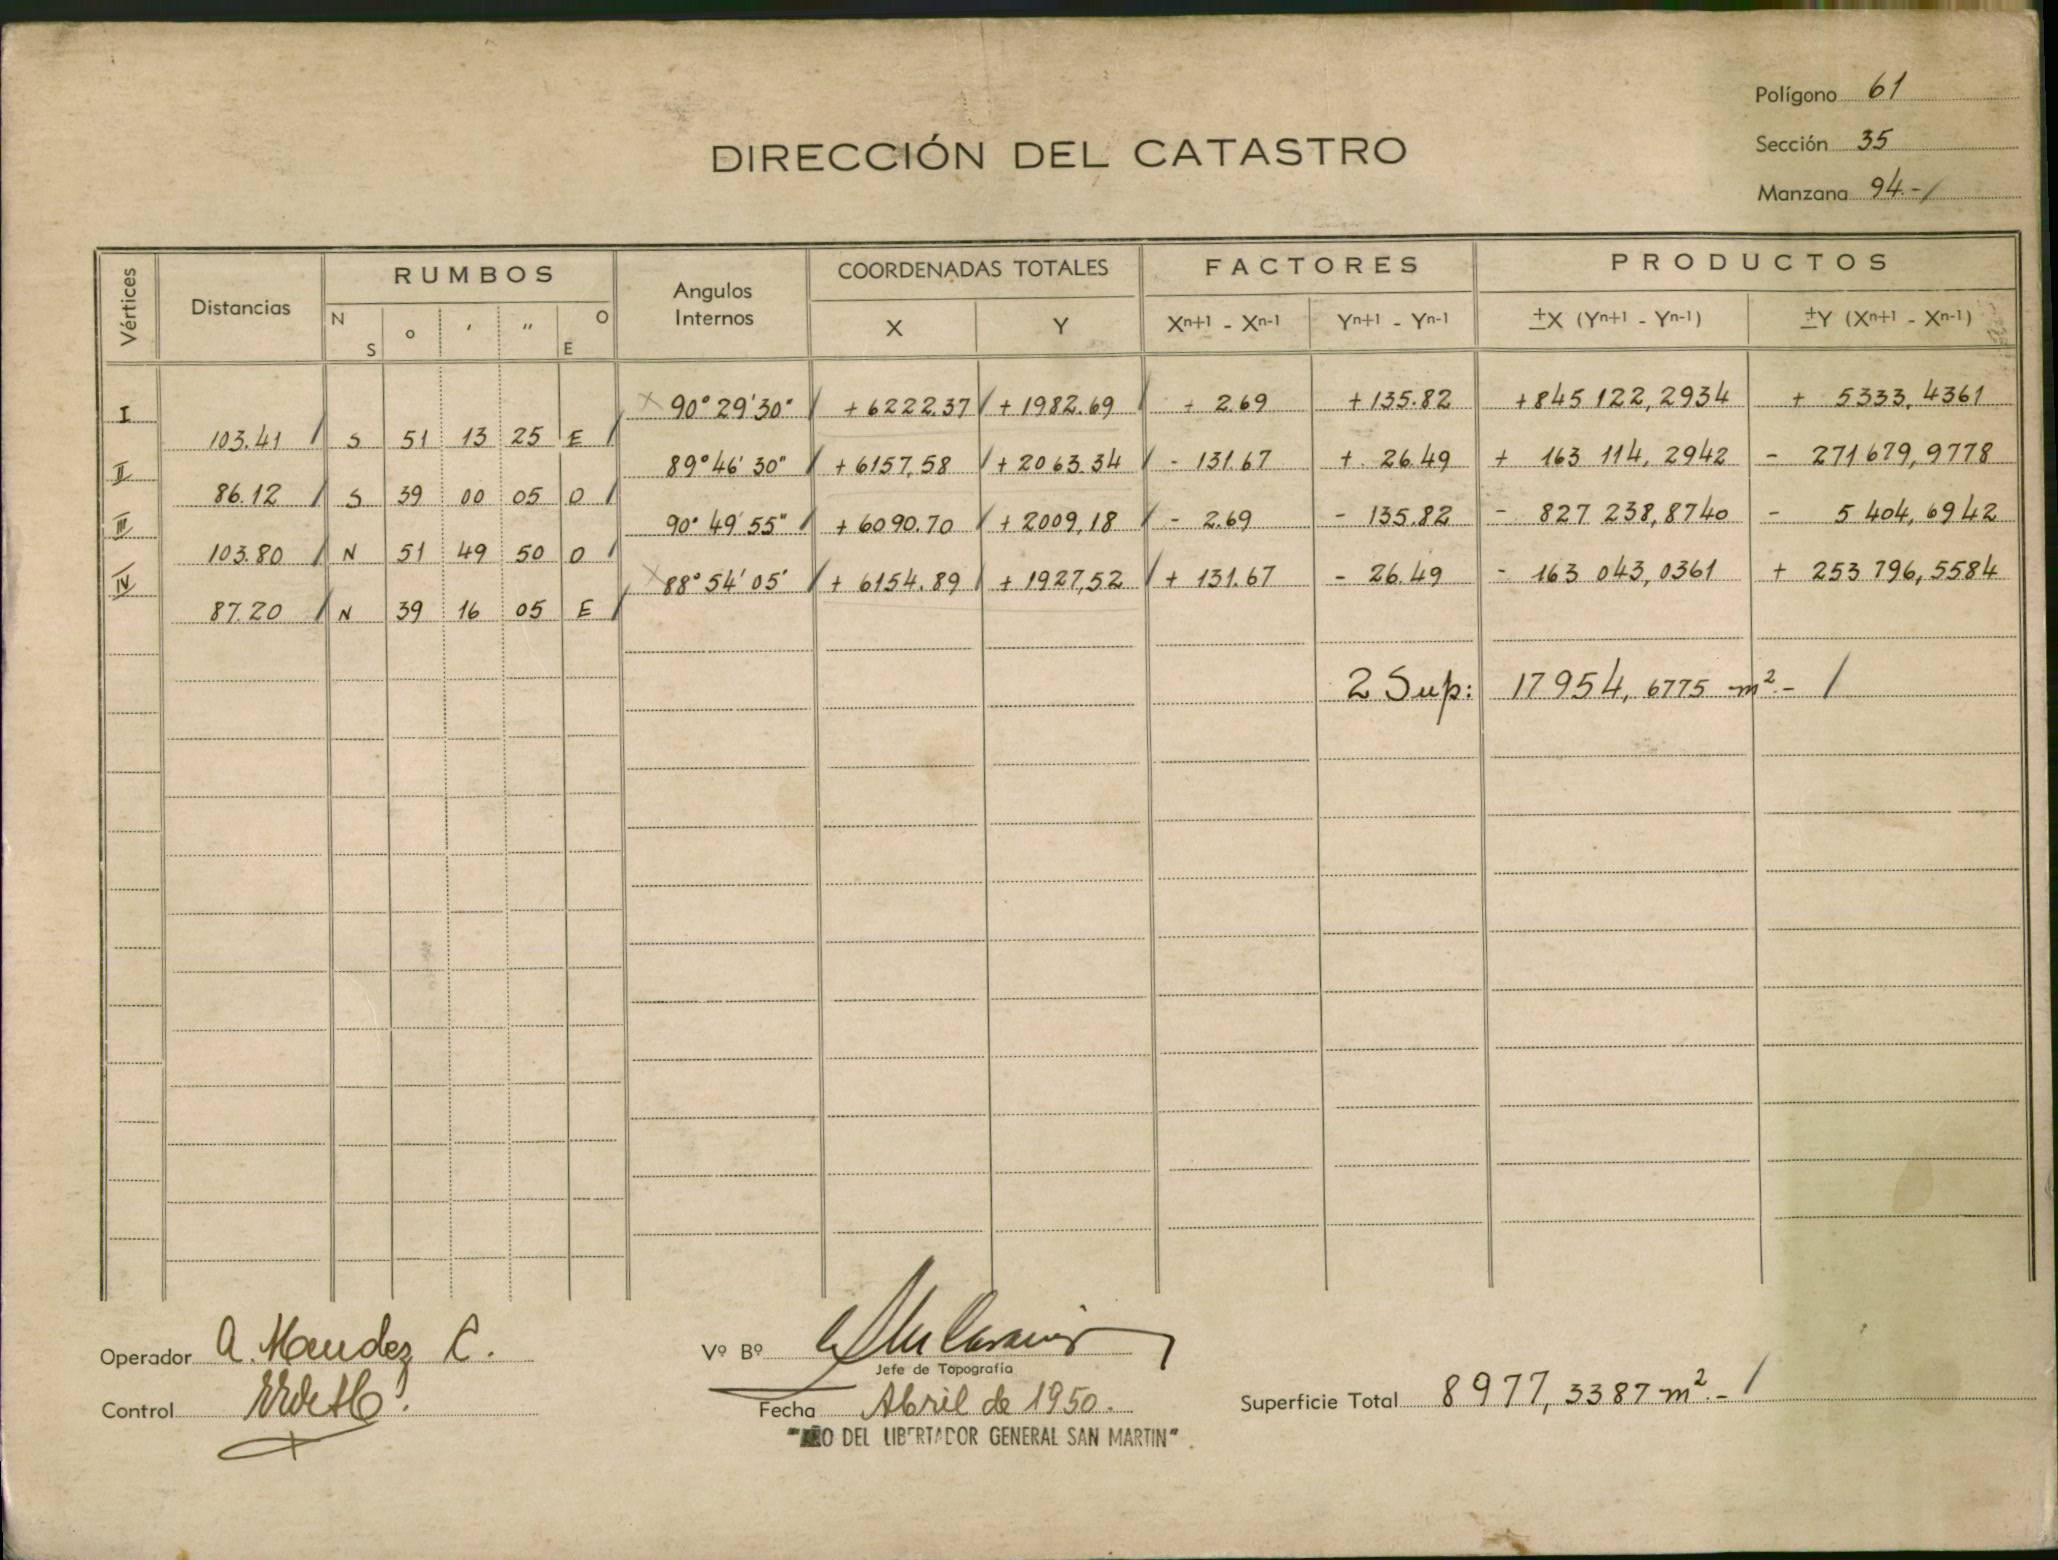 Polígono 61
DIRECCIÓN DEL CATASTRO
Sección 35
Manzana 94.-/
Vértices Distancias RUMBOS Angulos Internos COORDENADAS TOTALES FACTORES PRODUCTOS
N S o ' " O E X Y Xn+1 - Xn-1 Yn+1 - Yn-1 ±X (Yn+1 - Yn-1) ±Y (Xn+1 - Xn-1)
I 90° 29' 30" / + 6222.37 / + 1982.69 / + 2.69 + 135.82 + 845 122,2934 + 5333,4361
103.41 / S 51 13 25 E /
II 89° 46' 30" / + 6157,58 / + 2063.34 / - 131.67 + 26.49 + 163 114,2942 - 271 679,9778
86.12 / S 39 00 05 O /
III 90° 49' 55" / + 6090.70 / + 2009,18 / - 2.69 - 135.82 - 827 238,8740 - 5 404,6942
103.80 / N 51 49 50 O /
IV 88° 54' 05" / + 6154.89 / + 1927,52 / + 131.67 - 26.49 - 163 043,0361 + 253 796,5584
87.20 / N 39 16 05 E /
2 Sup: 17954,6775 m².- /
Operador A. Mendez C.
Vº Bº
Jefe de Topografía
Control
Fecha Abril de 1950.
Superficie Total 8977,3387 m².- /
"AÑO DEL LIBERTADOR GENERAL SAN MARTIN".